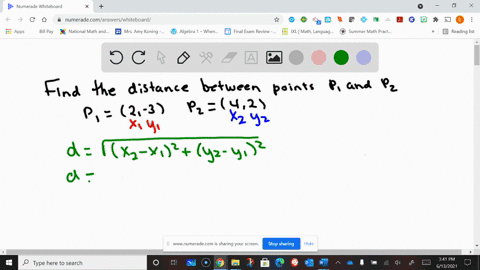 Numerade Whiteboard
numerade.com/answers/whiteboard/
Apps
Bill Pay
National Math and...
Mrs. Amy Koning -...
Algebra 1 - When...
Final Exam Review -...
(8) | Math, Languag...
Summer Math Pract...
Reading list
Find the distance between points P₁ and P₂
P₁ = (2,-3) P₂ = (4,2)
x₁ y₁ x₂ y₂
d = √(x₂-x₁)² + (y₂-y₁)²
d =
www.numerade.com is sharing your screen.
Stop sharing
Hide
Type here to search
3:41 PM
6/13/2021